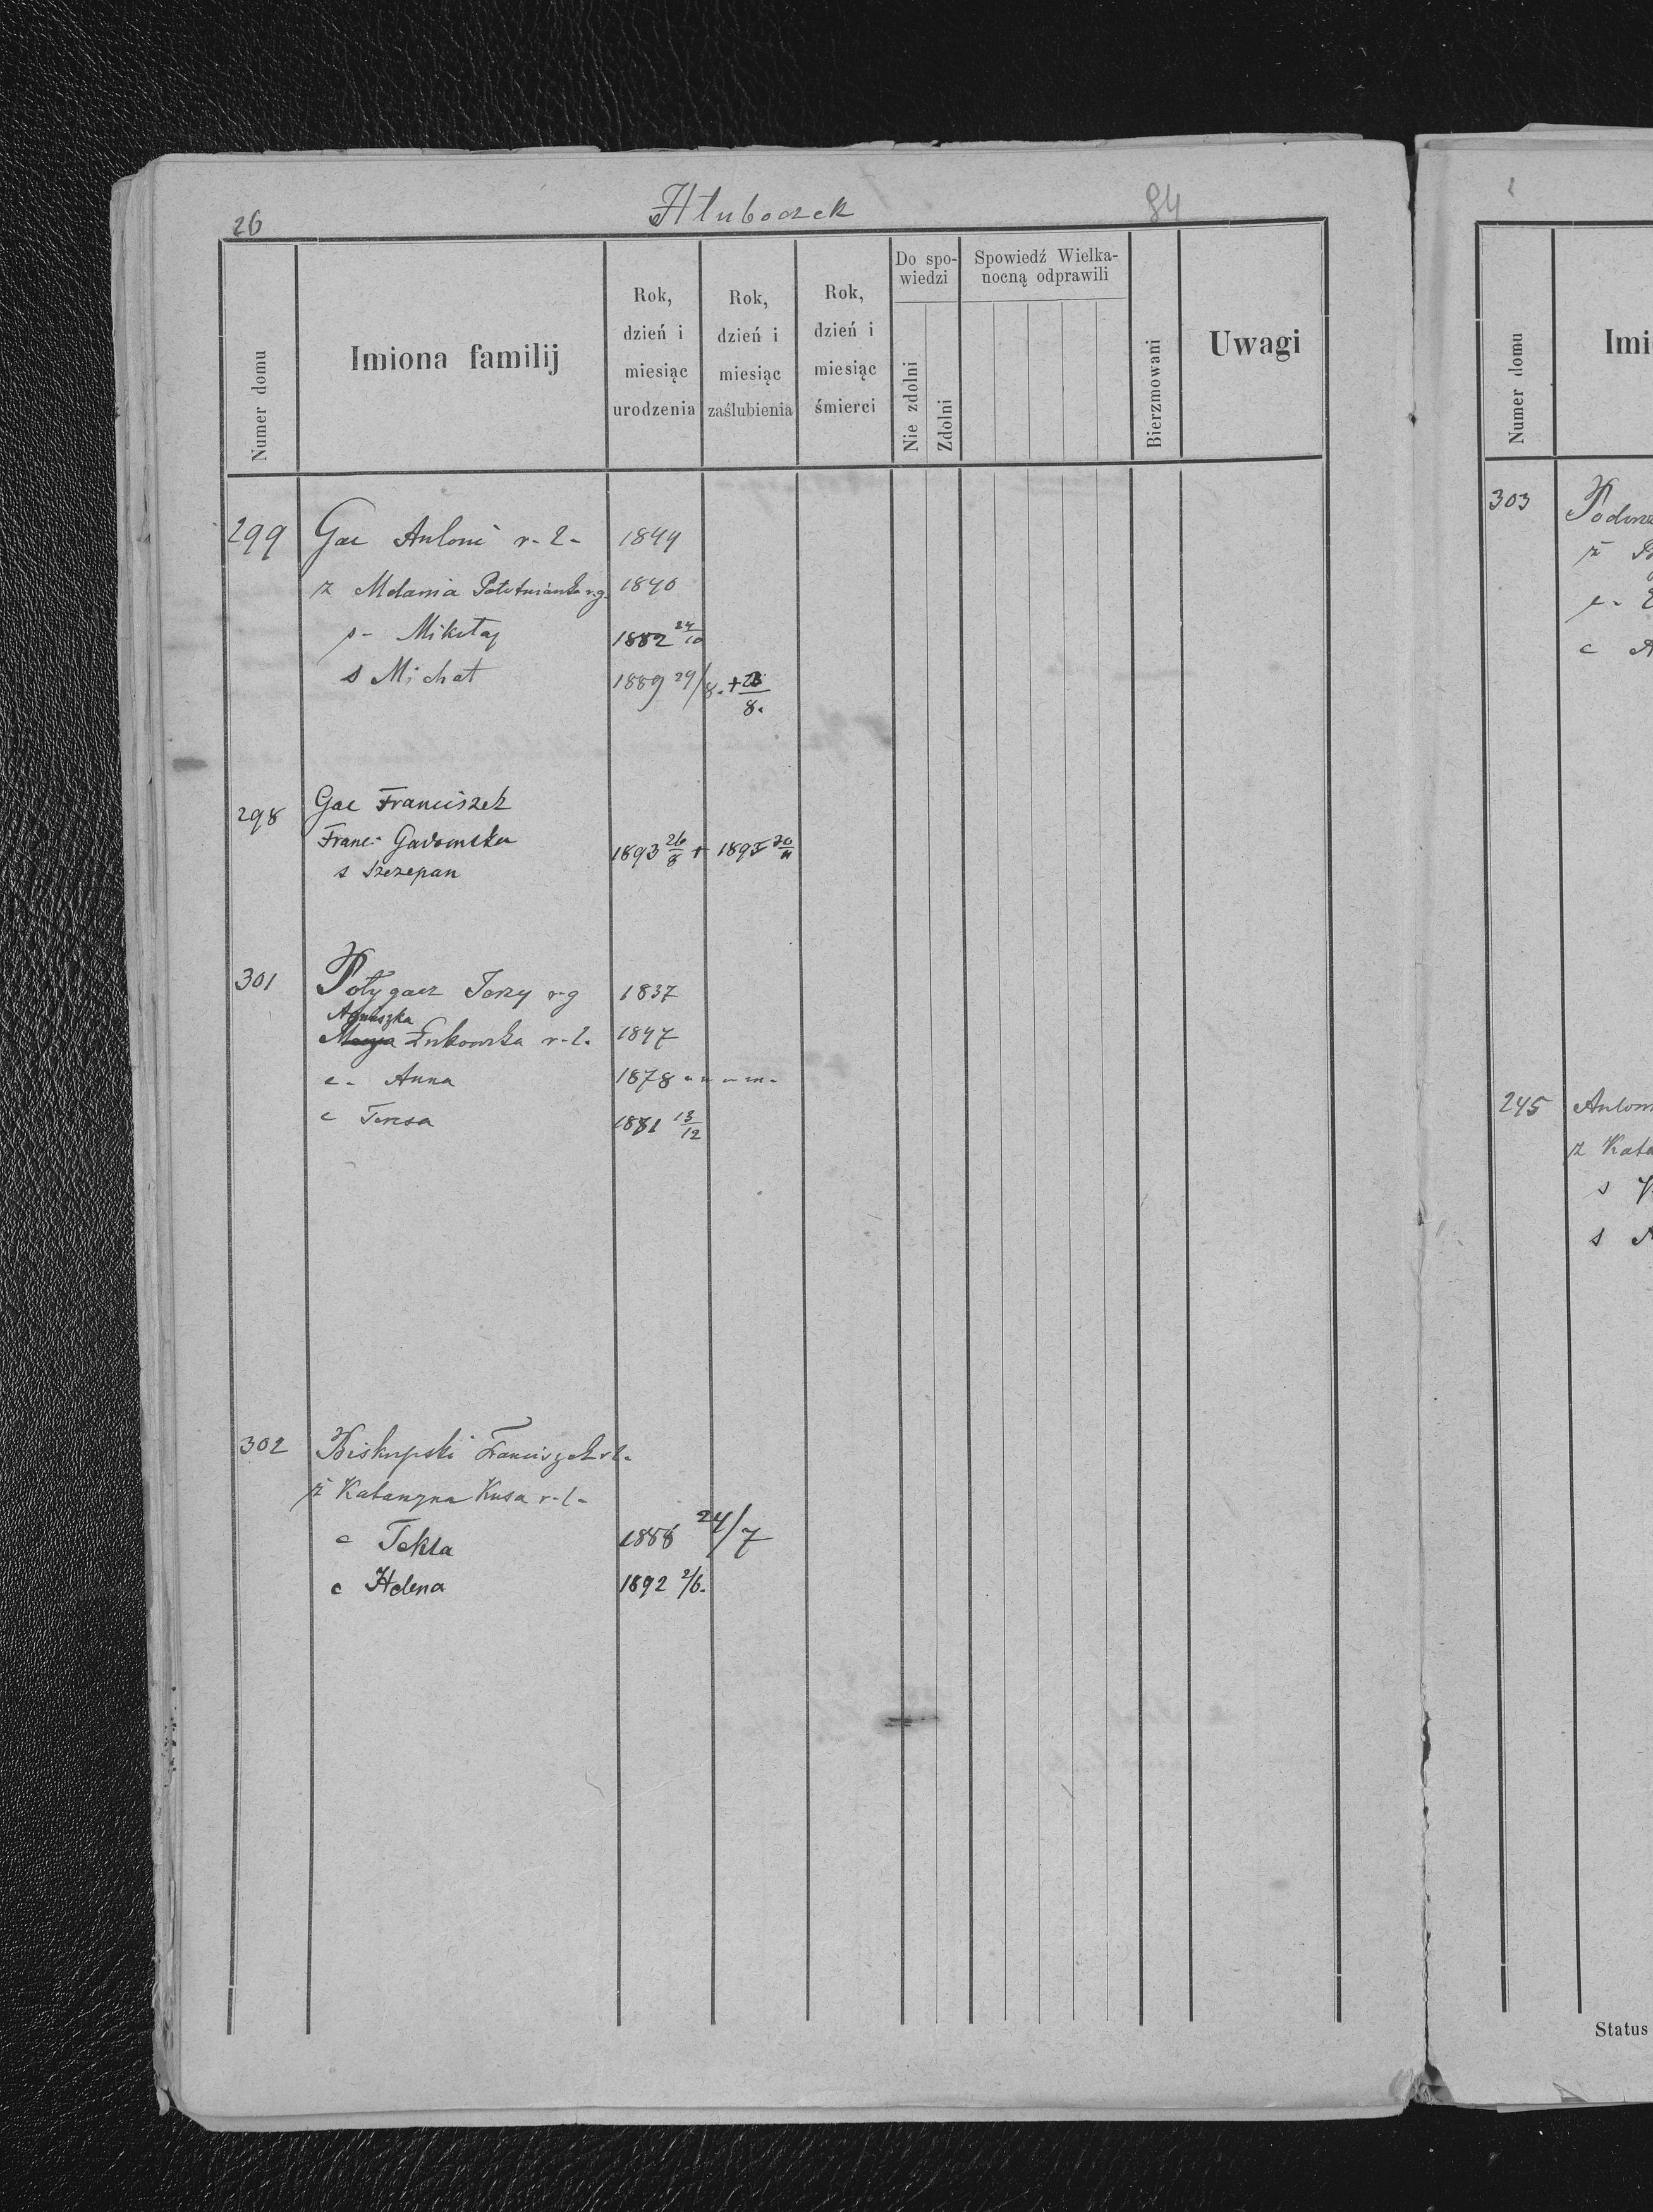 26
Hłuboczek
84
Numer domu
Imiona familij
Rok, dzień i miesiąc urodzenia
Rok, dzień i miesiąc zaślubienia
Rok, dzień i miesiąc śmierci
Do spo-
wiedzi
Nie zdolni
Zdolni
Spowiedź Wielka-
nocną odprawili
Bierzmowani
Uwagi
299 Gac Antoni r. l. 1844
ż Melania r. g. 1840
s. Mikołaj 1882 24/10
s Michał 1889 29/8. + 8.
298 Gac Franciszek
Franc. Gadomska 1893 26/8 + 1895 30/11
s Szczepan
301 Jerzy r. g 1837
Agnieszka
Żukowska r. l. 1847
c. Anna 1878
c Teresa 1881 13/12
302 Biskupski Franciszek r. l.
ż Katarzyna Kusa r. l.
c Tekla 1888 24/7
c Helena 1892 2/6.
Numer domu
Imi
303
245
ż Kata
s
s
Status